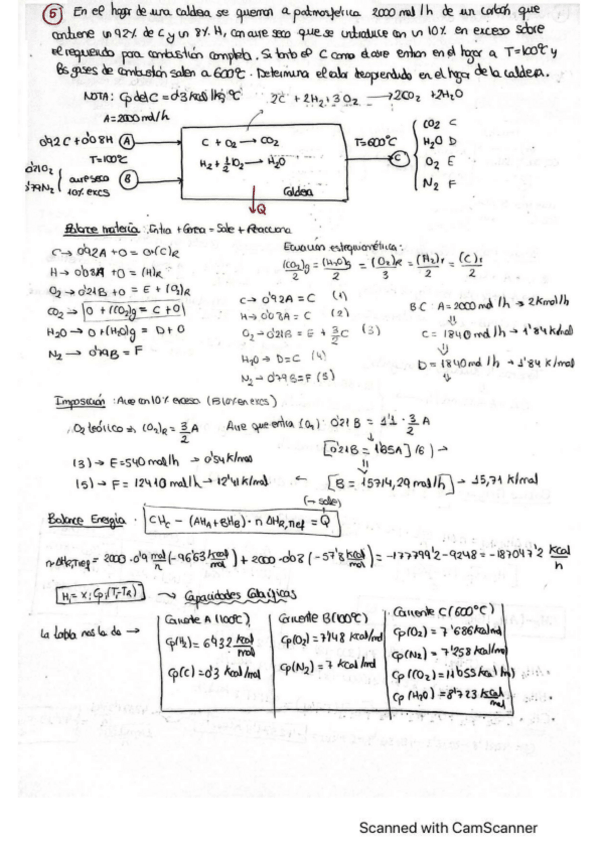 5 En el hogar de una caldera se queman a patmosférica 2000 mol/h de un carbón que
contiene un 92% de C y un 8% H, con aire seco que se introduce con un 10% en exceso sobre
el requerido para combustión completa. Si tanto el C como el aire entran en el hogar a T=100ºC y
los gases de combustión salen a 600ºC. Determina el calor desprendido en el hogar de la caldera.
NOTA: Cp del C = 0'3 kcal/kg ºC 2C + 2H₂ + 3O₂ → 2CO₂ + 2H₂O
A = 2000 mol/h
0'92C + 0'08H A
T=100ºC
0'21O₂
0'79N₂ aire seco
10% excs B
C + O₂ → CO₂
H₂ + ½O₂ → H₂O
Caldera
Q
T=600ºC
C
CO2 C
H₂O D
O₂ E
N₂ F
Balance materia: Entra + Genera = Sale + Reacciona
C → 0'92A + 0 = 0 + (C)R
H → 0'08A + 0 = (H)R
O₂ → 0'21B + 0 = E + (O₂)R
CO₂ → 0 + (CO₂)g = C + 0
H₂O → 0 + (H₂O)g = D + 0
N₂ → 0'79B = F
Ecuación estequiométrica:
(CO₂)g/2 = (H₂O)g/2 = (O₂)R/3 = (H₂)r/2 = (C)r/2
C → 0'92A = C (1)
H → 0'08A = C (2)
O₂ → 0'21B = E + 3/2 C (3)
H₂O → D = C (4)
N₂ → 0'79B = F (5)
BC: A = 2000 mol/h → 2 kmol/h
C = 1840 mol/h → 1'84 kmol
D = 1840 mol/h → 1'84 k/mol
Imposición: Aire con 10% exceso (B 10% en excs)
O₂ teórico = (O₂)R = 3/2 A Aire que entra (O₂): 0'21B = 1'1 · 3/2 A
[0'21B = 1'65A] (6) →
(3) → E = 540 mol/h → 0'54 k/mol
(5) → F = 12410 mol/h → 12'41 k/mol ← [B = 15714,29 mol/h] → 15,71 k/mol
Balance Energía: CHc − (AHA + BHB) · n ΔHR,ref = Q (→ sale)
n·ΔHR,ref = 2000 · 0'9 mol/h (−96'63 kcal/mol) + 2000 · 0'08 (−57'8 kcal/mol) = −177799'2 − 9248 = −187047'2 kcal/h
Hi = xi Cpi (T − TR) → Capacidades Caloríficas
La tabla nos la da →
Corriente A (100ºC)
Cp(H₂) = 6'432 kcal/mol
Cp(C) = 0'3 kcal/mol
Corriente B (100ºC)
Cp(O₂) = 7'148 kcal/mol
Cp(N₂) = 7 kcal/mol
Corriente C (600ºC)
Cp(O₂) = 7'686 kcal/mol
Cp(N₂) = 7'258 kcal/mol
Cp(CO₂) = 11'055 kcal/mol
Cp(H₂O) = 8'723 kcal/mol
Scanned with CamScanner